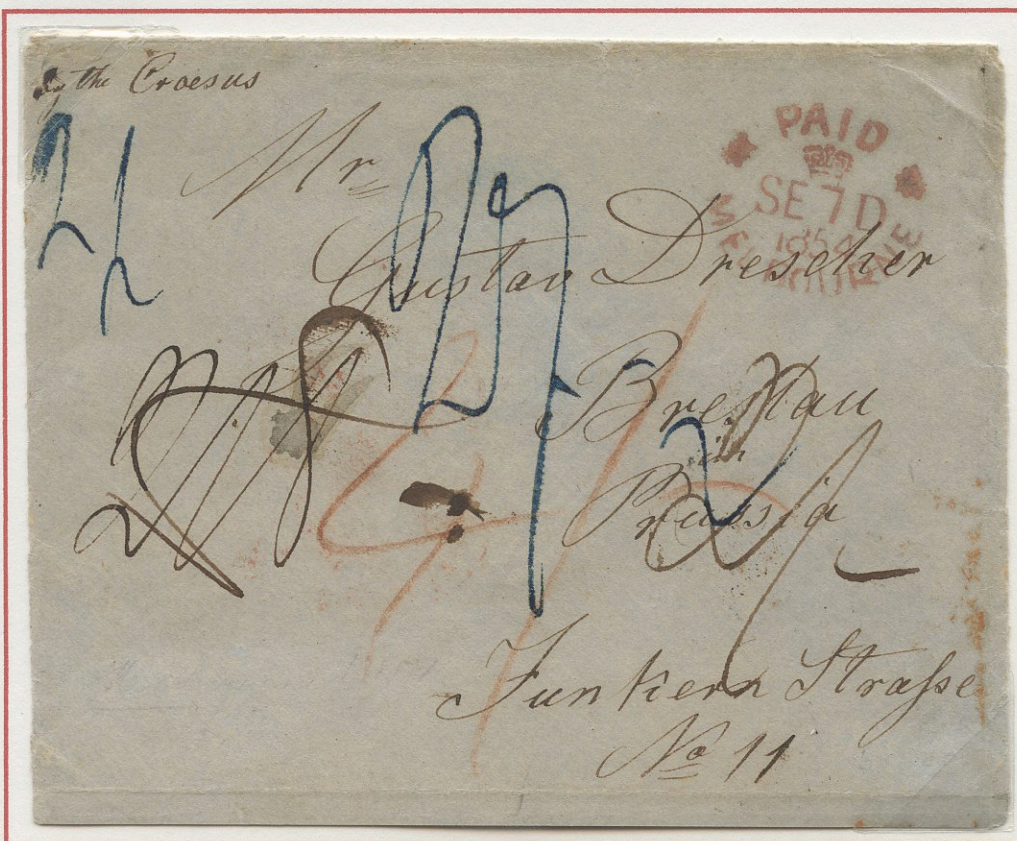 by the Croesus
PAID
SE 7 D
1854
MELBOURNE
Mr
Gustav Drescher
Breslau
in
Prussia
Junkern Straſse
No 11